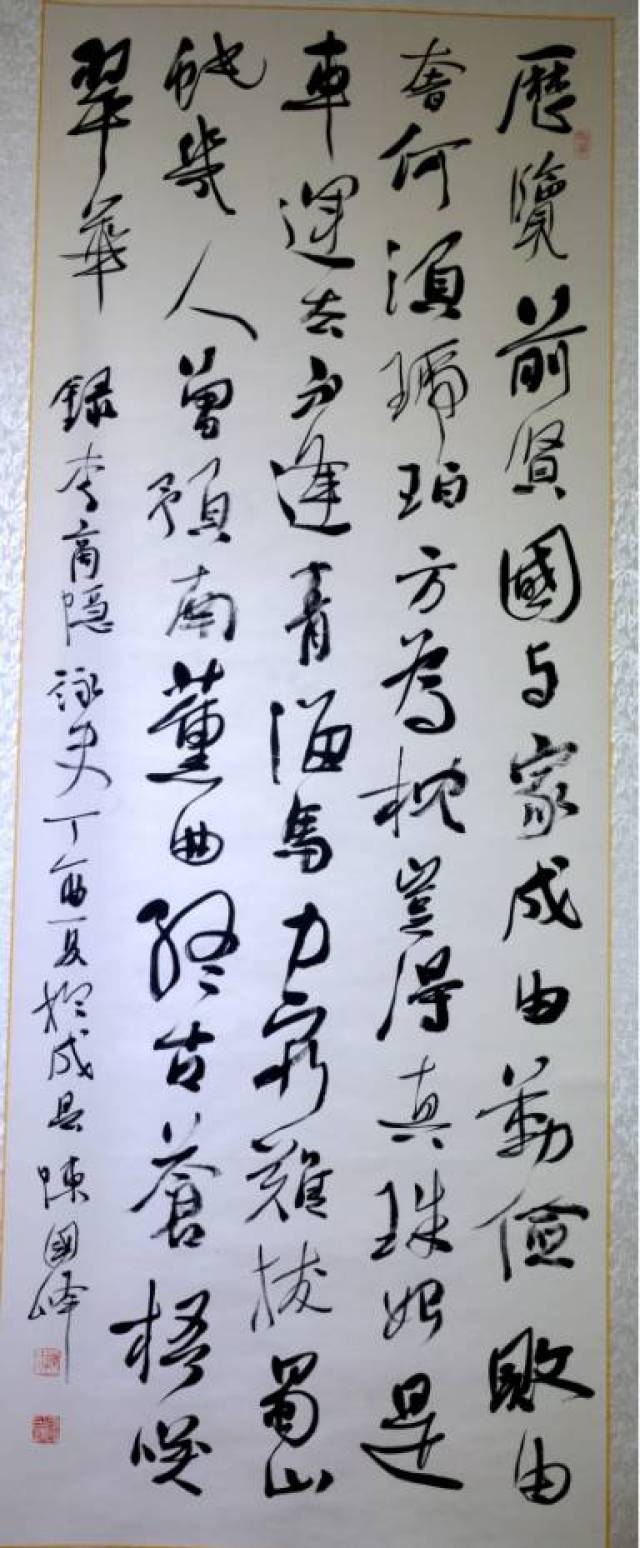 厯覽前賢國与家成由勤儉敗由
奢何須琥珀方為枕豈得真珠始是
車運去不逢青海馬力窮難拔蜀山
蛇幾人曾預南薰曲終古蒼梧哭
翠華 録李商隐詠史丁酉夏於成县陳國峰